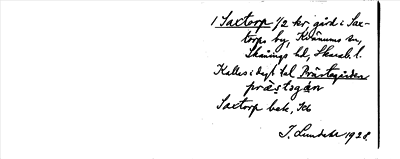 1 Saxtorp 1/2 kr, gård i Sax-
torps by, Kinnums sn,
Skånings hd, Skarab. l.
Kallas i dagl. tal Prästagården
prästagån
Saxtorp bek.,
J. Lundahl 1928.